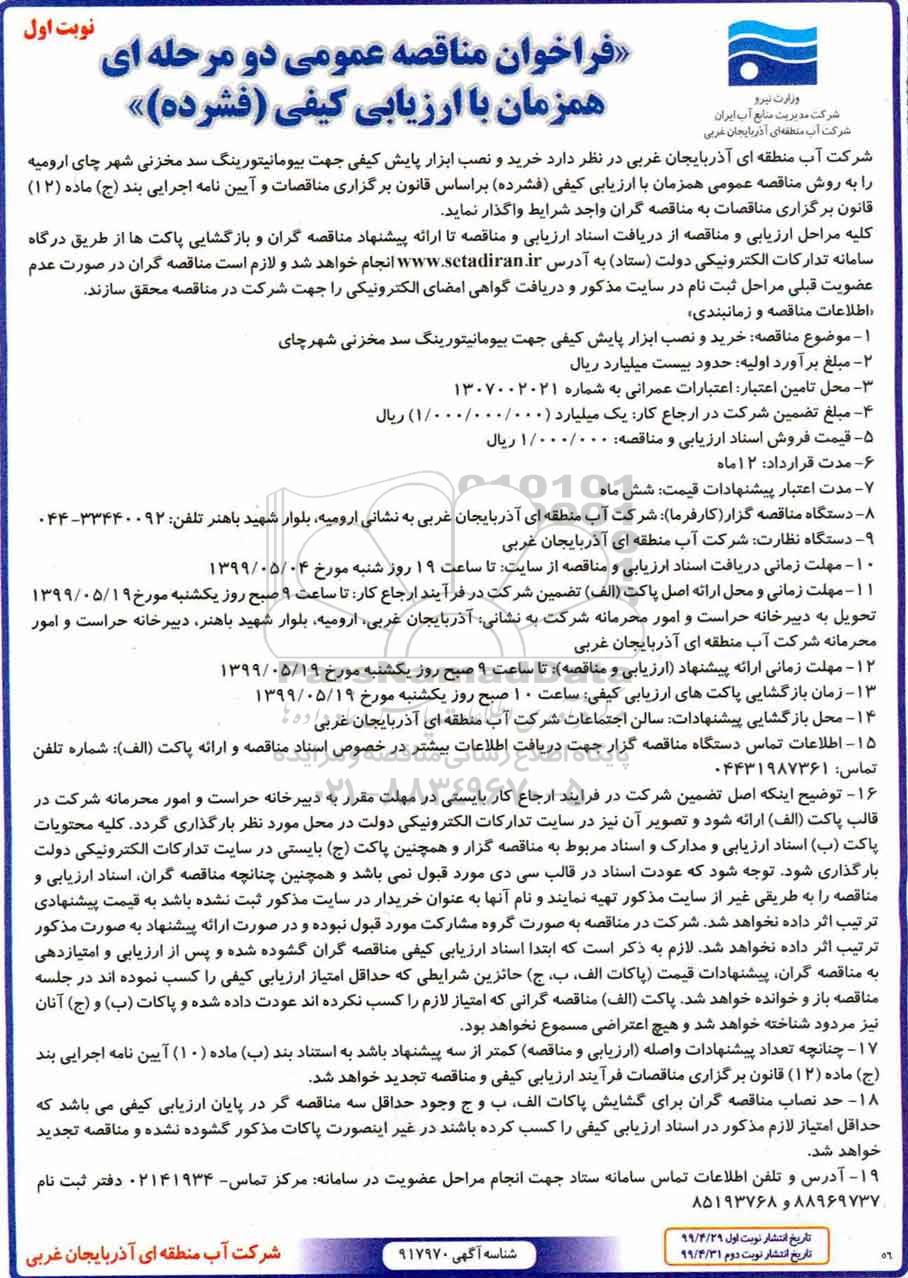 نوبت اول
«فراخوان مناقصه عمومی دو مرحله ای
همزمان با ارزیابی کیفی (فشرده)»
وزارت نیرو
شرکت مدیریت منابع آب ایران
شرکت آب منطقه‌ای آذربایجان غربی
شرکت آب منطقه ای آذربایجان غربی در نظر دارد خرید و نصب ابزار پایش کیفی جهت بیومانیتورینگ سد مخزنی شهر چای ارومیه
را به روش مناقصه عمومی همزمان با ارزیابی کیفی (فشرده) براساس قانون برگزاری مناقصات و آیین نامه اجرایی بند (ج) ماده (۱۲)
قانون برگزاری مناقصات به مناقصه گران واجد شرایط واگذار نماید.
کلیه مراحل ارزیابی و مناقصه از دریافت اسناد ارزیابی و مناقصه تا ارائه پیشنهاد مناقصه گران و بازگشایی پاکت ها از طریق درگاه
سامانه تدارکات الکترونیکی دولت (ستاد) به آدرس www.setadiran.ir انجام خواهد شد و لازم است مناقصه گران در صورت عدم
عضویت قبلی مراحل ثبت نام در سایت مذکور و دریافت گواهی امضای الکترونیکی را جهت شرکت در مناقصه محقق سازند.
«اطلاعات مناقصه و زمانبندی»
۱- موضوع مناقصه: خرید و نصب ابزار پایش کیفی جهت بیومانیتورینگ سد مخزنی شهرچای
۲- مبلغ برآورد اولیه: حدود بیست میلیارد ریال
۳- محل تامین اعتبار: اعتبارات عمرانی به شماره ۱۳۰۷۰۰۲۰۲۱
۴- مبلغ تضمین شرکت در ارجاع کار: یک میلیارد (۱/۰۰۰/۰۰۰/۰۰۰) ریال
۵- قیمت فروش اسناد ارزیابی و مناقصه: ۱/۰۰۰/۰۰۰ ریال
۶- مدت قرارداد: ۱۲ماه
۷- مدت اعتبار پیشنهادات قیمت: شش ماه
۸- دستگاه مناقصه گزار(کارفرما): شرکت آب منطقه ای آذربایجان غربی به نشانی ارومیه، بلوار شهید باهنر تلفن: ۳۳۴۴۰۰۹۲-۰۴۴
۹- دستگاه نظارت: شرکت آب منطقه ای آذربایجان غربی
۱۰- مهلت زمانی دریافت اسناد ارزیابی و مناقصه از سایت: تا ساعت ۱۹ روز شنبه مورخ ۱۳۹۹/۰۵/۰۴
۱۱- مهلت زمانی و محل ارائه اصل پاکت (الف) تضمین شرکت در فرآیند ارجاع کار: تا ساعت ۹ صبح روز یکشنبه مورخ ۱۳۹۹/۰۵/۱۹
تحویل به دبیرخانه حراست و امور محرمانه شرکت به نشانی: آذربایجان غربی، ارومیه، بلوار شهید باهنر، دبیرخانه حراست و امور
محرمانه شرکت آب منطقه ای آذربایجان غربی
۱۲- مهلت زمانی ارائه پیشنهاد (ارزیابی و مناقصه): تا ساعت ۹ صبح روز یکشنبه مورخ ۱۳۹۹/۰۵/۱۹
۱۳- زمان بازگشایی پاکت های ارزیابی کیفی: ساعت ۱۰ صبح روز یکشنبه مورخ ۱۳۹۹/۰۵/۱۹
۱۴- محل بازگشایی پیشنهادات: سالن اجتماعات شرکت آب منطقه ای آذربایجان غربی
۱۵- اطلاعات تماس دستگاه مناقصه گزار جهت دریافت اطلاعات بیشتر در خصوص اسناد مناقصه و ارائه پاکت (الف): شماره تلفن
تماس: ۰۴۴۳۱۹۸۷۳۶۱
۱۶- توضیح اینکه اصل تضمین شرکت در فرایند ارجاع کار بایستی در مهلت مقرر به دبیرخانه حراست و امور محرمانه شرکت در
قالب پاکت (الف) ارائه شود و تصویر آن نیز در سایت تدارکات الکترونیکی دولت در محل مورد نظر بارگذاری گردد. کلیه محتویات
پاکت (ب) اسناد ارزیابی و مدارک و اسناد مربوط به مناقصه گزار و همچنین پاکت (ج) بایستی در سایت تدارکات الکترونیکی دولت
بارگذاری شود. توجه شود که عودت اسناد در قالب سی دی مورد قبول نمی باشد و همچنین چنانچه مناقصه گران، اسناد ارزیابی و
مناقصه را به طریقی غیر از سایت مذکور تهیه نمایند و نام آنها به عنوان خریدار در سایت مذکور ثبت نشده باشد به قیمت پیشنهادی
ترتیب اثر داده نخواهد شد. شرکت در مناقصه به صورت گروه مشارکت مورد قبول نبوده و در صورت ارائه پیشنهاد به صورت مذکور
ترتیب اثر داده نخواهد شد. لازم به ذکر است که ابتدا اسناد ارزیابی کیفی مناقصه گران گشوده شده و پس از ارزیابی و امتیازدهی
به مناقصه گران، پیشنهادات قیمت (پاکات الف، ب، ج) حائزین شرایطی که حداقل امتیاز ارزیابی کیفی را کسب نموده اند در جلسه
مناقصه باز و خوانده خواهد شد. پاکت (الف) مناقصه گرانی که امتیاز لازم را کسب نکرده اند عودت داده شده و پاکات (ب) و (ج) آنان
نیز مردود شناخته خواهد شد و هیچ اعتراضی مسموع نخواهد بود.
۱۷- چنانچه تعداد پیشنهادات واصله (ارزیابی و مناقصه) کمتر از سه پیشنهاد باشد به استناد بند (ب) ماده (۱۰) آیین نامه اجرایی بند
(ج) ماده (۱۲) قانون برگزاری مناقصات فرآیند ارزیابی کیفی و مناقصه تجدید خواهد شد.
۱۸- حد نصاب مناقصه گران برای گشایش پاکات الف، ب و ج وجود حداقل سه مناقصه گر در پایان ارزیابی کیفی می باشد که
حداقل امتیاز لازم مذکور در اسناد ارزیابی کیفی را کسب کرده باشند در غیر اینصورت پاکات مذکور گشوده نشده و مناقصه تجدید
خواهد شد.
۱۹- آدرس و تلفن اطلاعات تماس سامانه ستاد جهت انجام مراحل عضویت در سامانه: مرکز تماس- ۰۲۱۴۱۹۳۴ دفتر ثبت نام
۸۸۹۶۹۷۳۷ و ۸۵۱۹۳۷۶۸
ParsNamadData
پایگاه اطلاع رسانی مناقصه و مزایده
۰۲۱-۸۸۳۴۹۶۷۰-۵
تاریخ انتشار نوبت اول ۹۹/۴/۲۹
تاریخ انتشار نوبت دوم ۹۹/۴/۳۱
شناسه آگهی ۹۱۷۹۷۰
شرکت آب منطقه ای آذربایجان غربی
۵۶